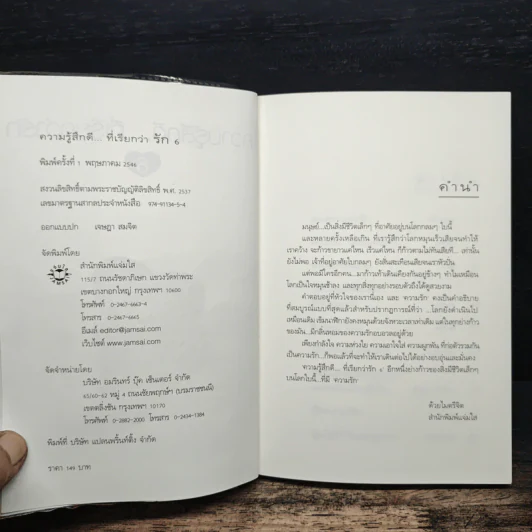 ความรู้สึกดี... ที่เรียกว่า รัก 6
พิมพ์ครั้งที่ 1 พฤษภาคม 2546
สงวนลิขสิทธิ์ตามพระราชบัญญัติลิขสิทธิ์ พ.ศ. 2537
เลขมาตรฐานสากลประจำหนังสือ 974-91134-5-4
ออกแบบปก เจษฎา สมจิต
จัดพิมพ์โดย
สำนักพิมพ์แจ่มใส
115/7 ถนนรัชดาภิเษก แขวงวัดท่าพระ
เขตบางกอกใหญ่ กรุงเทพฯ 10600
โทรศัพท์ 0-2467-6663-4
โทรสาร 0-2467-6663
อีเมล์ editor@jamsai.com
เว็บไซต์ www.jamsai.com
จัดจำหน่ายโดย
บริษัท อมรินทร์ บุ๊ค เซ็นเตอร์ จำกัด
65/60-62 หมู่ 4 ถนนชัยพฤกษ์ฯ (บรมราชชนนี)
เขตตลิ่งชัน กรุงเทพฯ 10170
โทรศัพท์ 0-2882-2000 โทรสาร 0-2434-1384
พิมพ์ที่ บริษัท แปลนพริ้นท์ติ้ง จำกัด
ราคา 149 บาท
คำนำ
มนุษย์...เป็นสิ่งมีชีวิตเล็กๆ ที่อาศัยอยู่บนโลกกลมๆ ใบนี้
และหลายครั้งเหลือเกิน ที่เรารู้สึกว่าโลกหมุนเร็วเสียจนทำให้
เราคว้าง จะก้าวขายาวแค่ไหน เร็วแค่ไหน ก็ก้าวตามไม่ทันเสียที... เท่านั้น
ยังไม่พอ เจ้าที่อยู่อาศัยใบกลมๆ ยังสั่นสะเทือนเสียจนเราหัวปั่น
แต่พอมีใครอีกคน...มาก้าวเท้าเดินเคียงกันอยู่ข้างๆ ทำไมเหมือน
โลกเป็นใจหมุนช้าลง และทุกสิ่งทุกอย่างรอบตัวถึงได้ดูสวยงาม
คำตอบอยู่ที่หัวใจของเรานี่เอง และ 'ความรัก' คงเป็นคำอธิบาย
ที่สมบูรณ์แบบที่สุดแล้วสำหรับปรากฏการณ์ที่ว่า ...โลกยังดำเนินไป
เหมือนเดิม เข็มนาฬิกายังคงหมุนด้วยจังหวะเวลาเท่าเดิม แต่ในทุกย่างก้าว
ของมัน...มีกลิ่นหอมของความรักอบอวลอยู่ด้วย
เพียงกำลังใจ ความห่วงใย ความเอาใจใส่ ความผูกพัน ที่ก่อตัวรวมกัน
เป็นความรัก...ก็พอแล้วที่จะทำให้เราเดินต่อไปได้อย่างอบอุ่นและมั่นคง
'ความรู้สึกดี... ที่เรียกว่ารัก 6' อีกหนึ่งย่างก้าวของสิ่งมีชีวิตเล็กๆ
บนโลกใบนี้...ที่มี 'ความรัก'
ด้วยไมตรีจิต
สำนักพิมพ์แจ่มใส